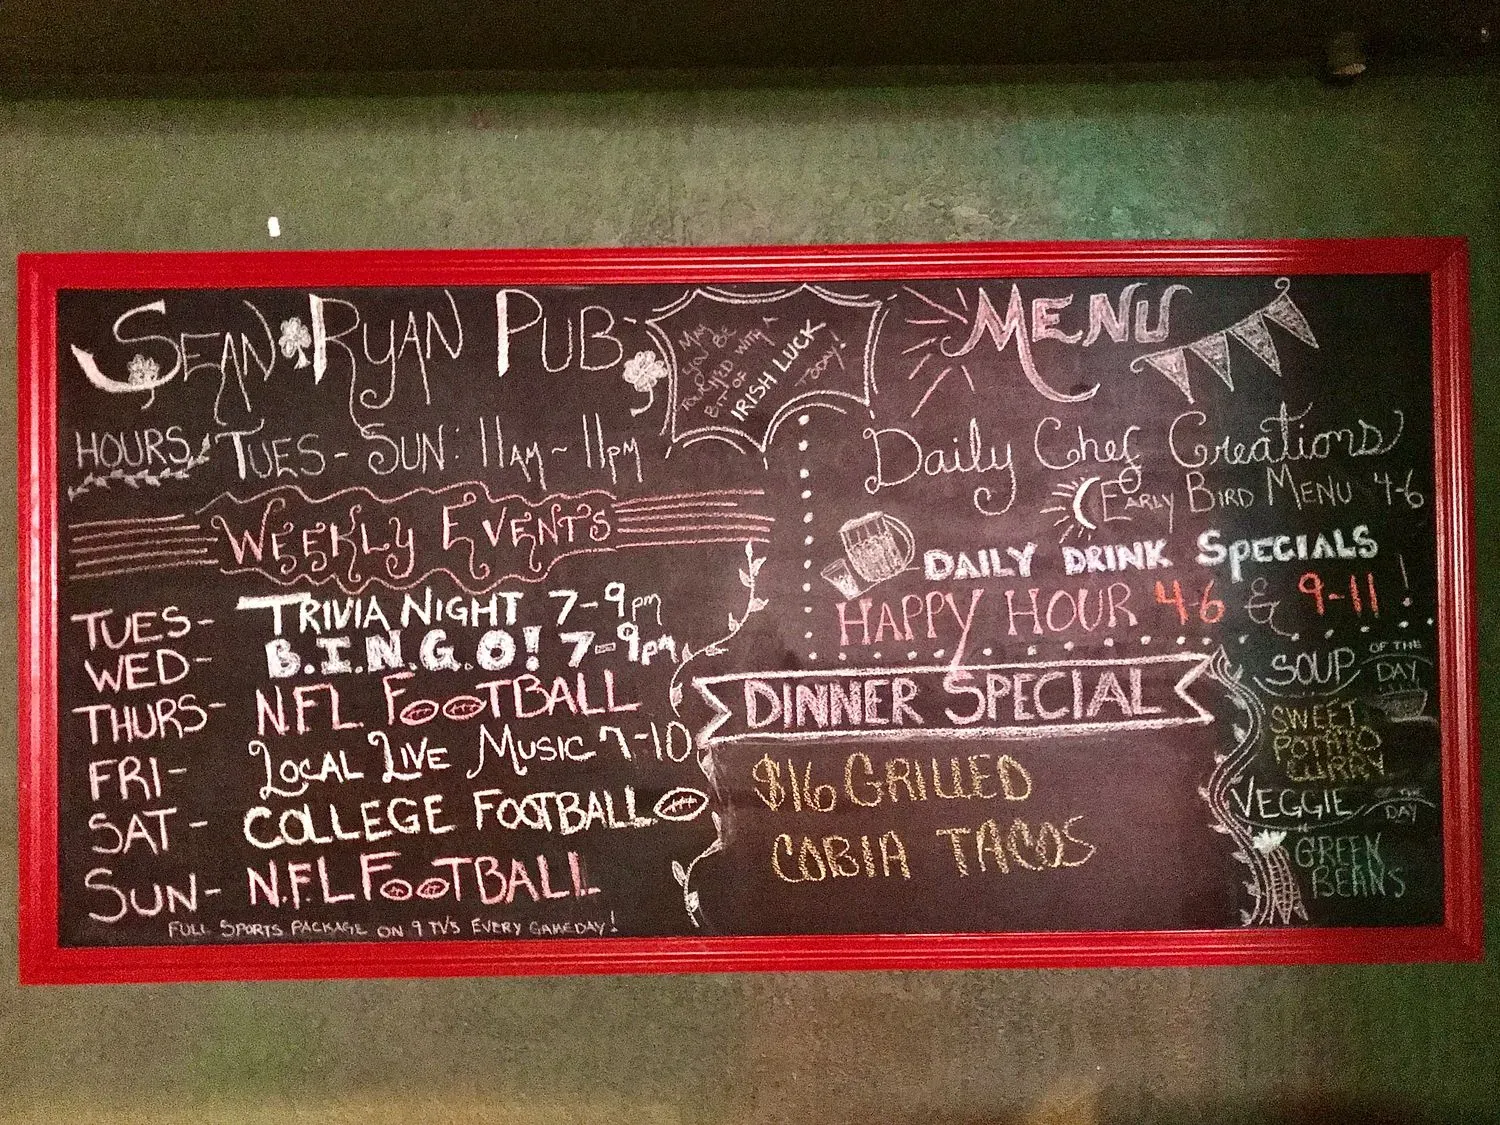 SEAN RYAN PUB
MAY
YOU BE
TOUCHED WITH A
BIT OF
IRISH LUCK
TODAY!
HOURS: TUES - SUN: 11AM - 11PM
WEEKLY EVENTS
TUES- TRIVIA NIGHT 7-9pm
WED- B.I.N.G.O! 7-9pm
THURS- NFL FOOTBALL
FRI- LOCAL LIVE MUSIC 7-10
SAT- COLLEGE FOOTBALL
SUN- N.F.L FOOTBALL
FULL SPORTS PACKAGE ON 9 TV'S EVERY GAMEDAY!
MENU
Daily Chef Creations
EARLY BIRD MENU 4-6
DAILY DRINK SPECIALS
HAPPY HOUR 4-6 & 9-11!
DINNER SPECIAL
$16 GRILLED
COBIA TACOS
SOUP OF THE DAY
SWEET
POTATO
CURRY
VEGGIE OF THE DAY
GREEN
BEANS